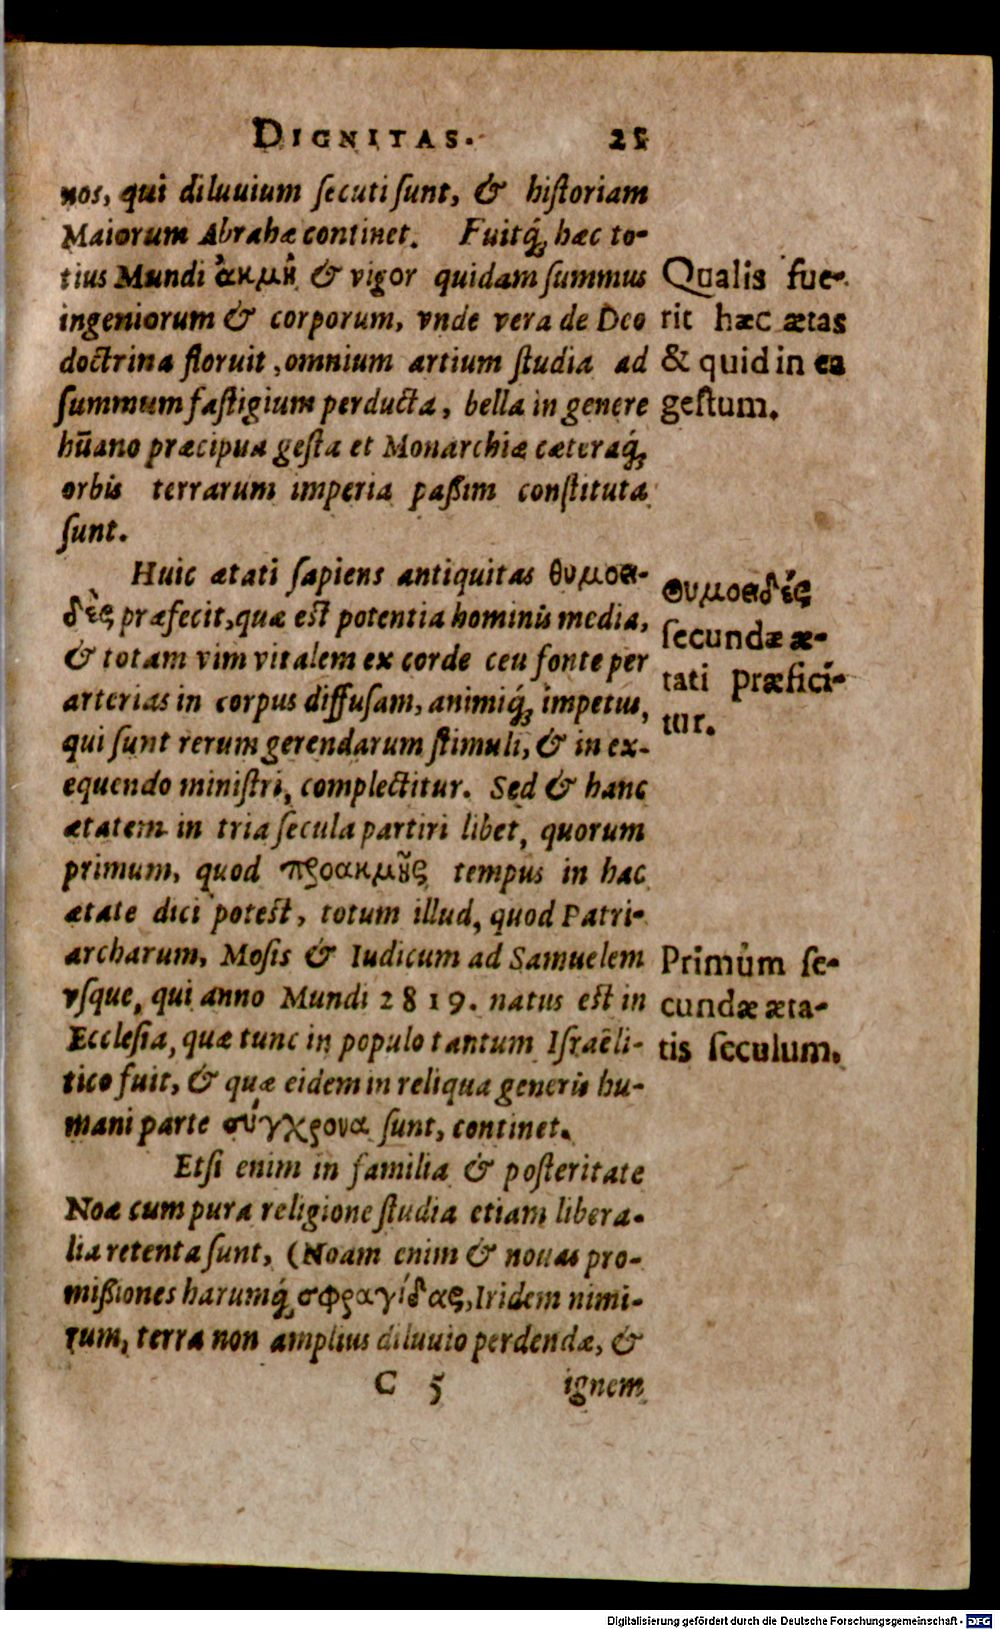 DIGNITAS. 25
nos, qui diluuium ſecuti ſunt, & hiſtoriam
Maiorum Abrahæ continet. Fuitq́ꝫ hæc to-
tius Mundi ἀκμὴ & vigor quidam ſummus
ingeniorum & corporum, vnde vera de Deo
doctrina floruit, omnium artium ſtudia ad
ſummum faſtigium perducta, bella in genere
hūano præcipua geſta et Monarchiæ cæteraq́ꝫ
orbis terrarum imperia paßim conſtituta
ſunt.
Qualis fue-
rit hæc ætas
& quid in ea
geſtum.
Huic ætati ſapiens antiquitas θυμοει-
δὲς præfecit, quæ eſt potentia hominis media,
& totam vim vitalem ex corde ceu fonte per
arterias in corpus diffuſam, animiq́ꝫ impetus,
qui ſunt rerum gerendarum ſtimuli, & in ex-
equendo miniſtri, complectitur. Sed & hanc
ætatem in tria ſecula partiri libet, quorum
primum, quod προακμῆς tempus in hac
ætate dici poteſt, totum illud, quod Patri-
archarum, Moſis & Iudicum ad Samuelem
vſque, qui anno Mundi 2819. natus eſt in
Eccleſia, quæ tunc in populo tantum Iſraëli-
tico fuit, & quæ eidem in reliqua generis hu-
mani parte σύγχρονα ſunt, continet.
θυμοειδές
ſecundæ æ-
tati præfici-
tur.
Primùm ſe-
cundæ æta-
tis ſeculum.
Etſi enim in familia & poſteritate
Noæ cum pura religione ſtudia etiam libera-
lia retenta ſunt, (Noam enim & nouas pro-
mißiones harumq́ꝫ σφραγίδας, Iridem nimi-
rum, terræ non amplius diluuio perdendæ, &
C 5 ignem
Digitalisierung gefördert durch die Deutsche Forschungsgemeinschaft - DFG